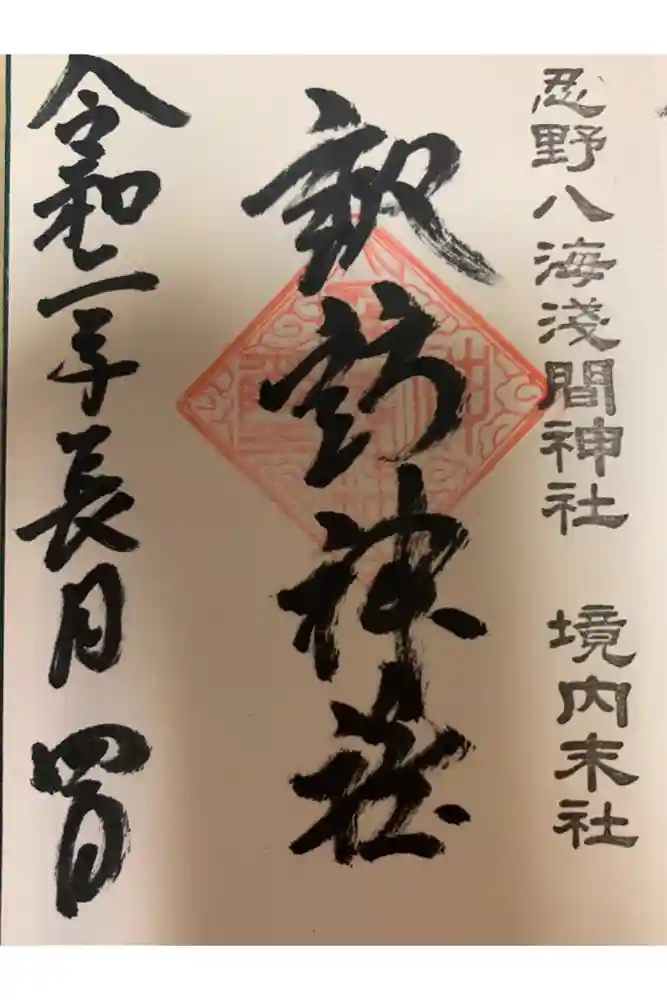 忍野八海淺間神社　境内末社
諏訪神社
令和二年長月四日